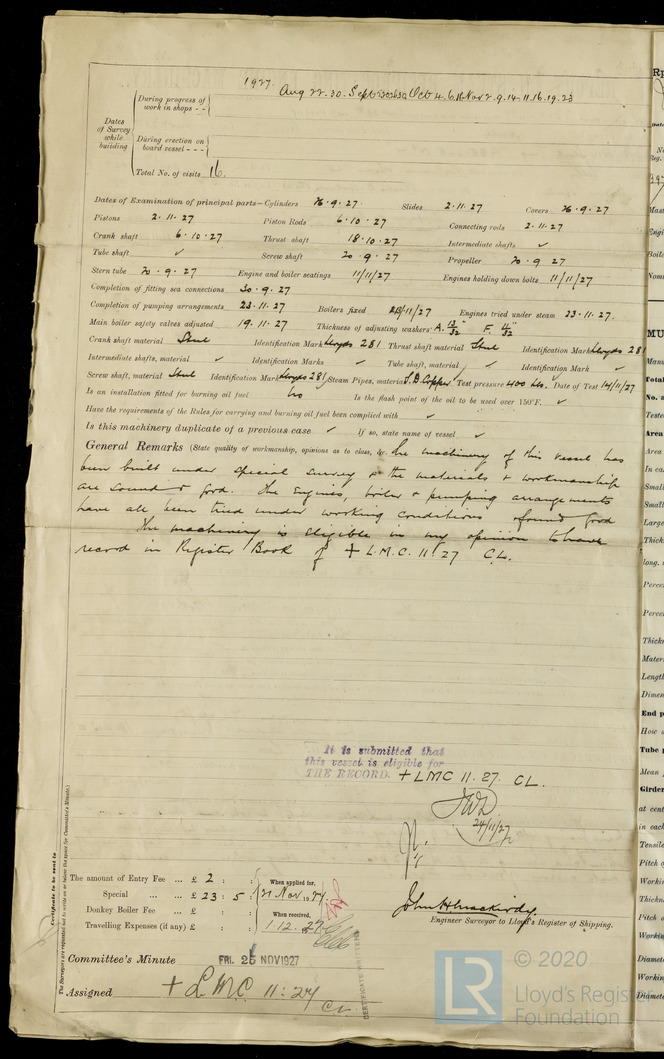 1927.
Aug 22. 30. Sept Oct 4. 6. 18 Nov 2. 9. 14. 11. 16. 19. 23
Dates of Survey while building
During progress of work in shops - -
During erection on board vessel - - -
Total No. of visits 16.
Dates of Examination of principal parts—Cylinders 26.9.27. Slides 2.11.27 Covers 26.9.27
Pistons 2.11.27 Piston Rods 6.10.27 Connecting rods 2.11.27
Crank shaft 6.10.27 Thrust shaft 18.10.27 Intermediate shafts ✓
Tube shaft ✓ Screw shaft 20.9.27 Propeller 20.9.27
Stern tube 20.9.27 Engine and boiler seatings 11/11/27 Engines holding down bolts 11/11/27
Completion of fitting sea connections 30.9.27
Completion of pumping arrangements 23.11.27 Boilers fixed /11/27 Engines tried under steam 23.11.27.
Main boiler safety valves adjusted 19.11.27 Thickness of adjusting washers A. 13/32" F. 11/32"
Crank shaft material Steel Identification Mark Lloyds 281 Thrust shaft material Steel Identification Mark Lloyds 28
Intermediate shafts, material ✓ Identification Marks ✓ Tube shaft, material ✓ Identification Mark ✓
Screw shaft, material Steel Identification Mark Lloyds 281 Steam Pipes, material S.D. Copper Test pressure 400 lbs. Date of Test 14/11/27
Is an installation fitted for burning oil fuel No Is the flash point of the oil to be used over 150°F. ✓
Have the requirements of the Rules for carrying and burning oil fuel been complied with ✓
Is this machinery duplicate of a previous case ✓ If so, state name of vessel ✓
General Remarks (State quality of workmanship, opinions as to class, &c. The machinery of this vessel has
been built under special survey & the materials & workmanship
are sound & good. The Engines, boiler & pumping arrangements
have all been tried under working conditions & found good
The machinery is eligible in my opinion to have
record in Register Book of + L.M.C. 11/27 C.L.
It is submitted that
this vessel is eligible for
THE RECORD. + LMC 11.27. CL.
24/11/27
Certificate to be sent to
(The Surveyors are requested not to write on or below the space for Committee's Minute.)
The amount of Entry Fee ... £ 2 : :
Special ... ... £ 23 : 5 :
Donkey Boiler Fee ... £ : :
Travelling Expenses (if any) £ : :
When applied for,
21 Nov. 1927.
When received,
1.12.27
John H Mackirdy
Engineer Surveyor to Lloyd's Register of Shipping.
Committee's Minute FRI. 25 NOV 1927
Assigned + L.M.C. 11:27
CL.
CERTIFICATE WRITTEN
© 2020
LR
Lloyd's Register
Foundation